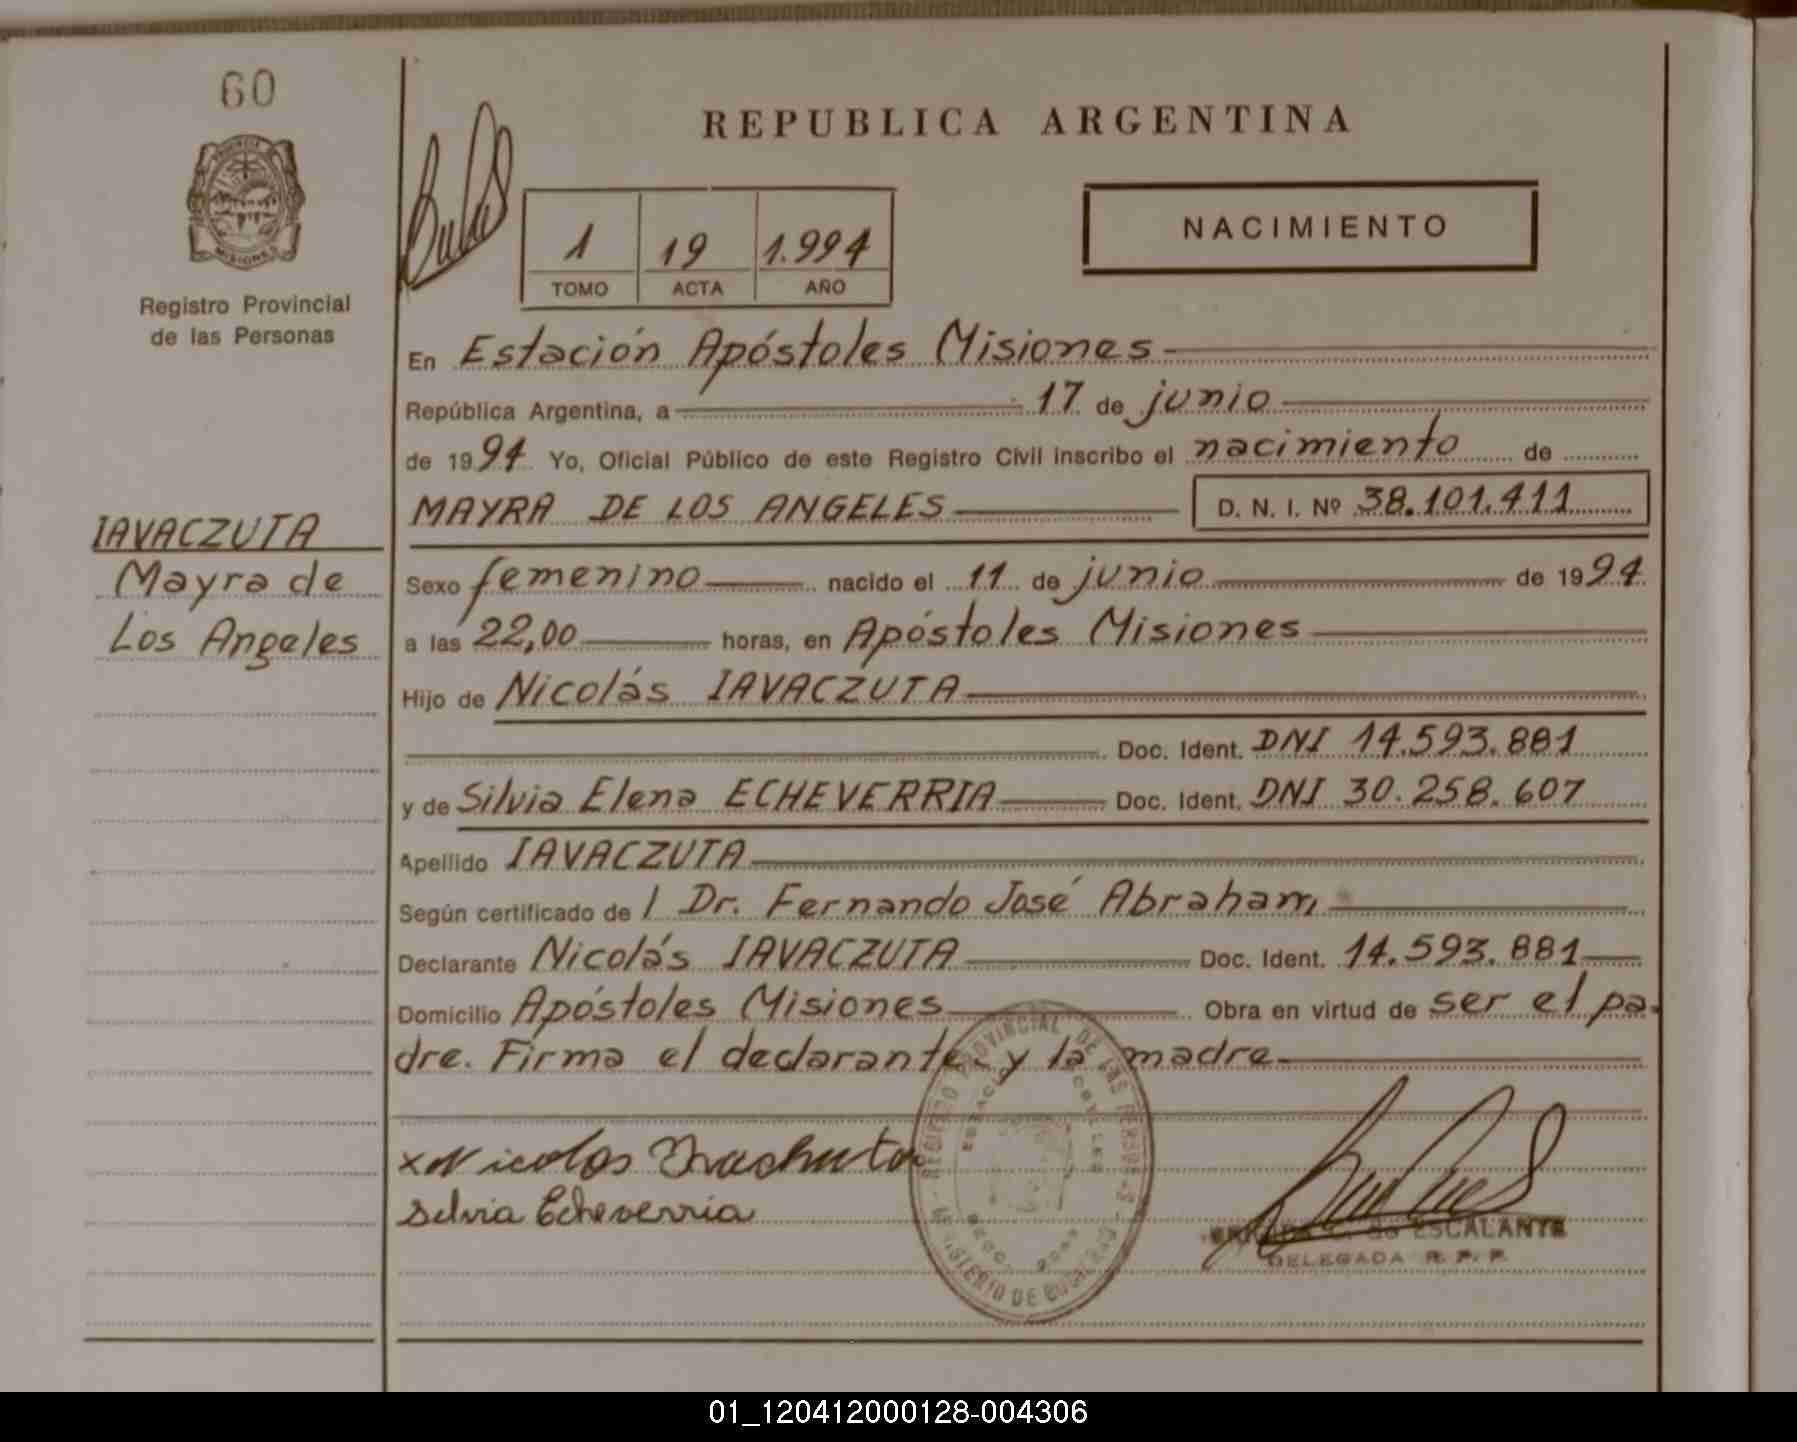 60
PROVINCIA
MISIONES
Registro Provincial
de las Personas
REPUBLICA ARGENTINA
NACIMIENTO
1 19 1.994
TOMO ACTA AÑO
En Estación Apóstoles Misiones
República Argentina, a 17 de junio
de 1994 Yo, Oficial Público de este Registro Civil inscribo el nacimiento de
MAYRA DE LOS ANGELES D. N. I. Nº 38.101.411
IAVACZUTA
Mayra de
Los Angeles
Sexo femenino nacido el 11 de junio de 1994
a las 22,00 horas, en Apóstoles Misiones
Hijo de Nicolás IAVACZUTA
Doc. Ident. DNI 14.593.881
y de Silvia Elena ECHEVERRIA Doc. Ident. DNI 30.258.607
Apellido IAVACZUTA
Según certificado de / Dr. Fernando José Abraham
Declarante Nicolás IAVACZUTA Doc. Ident. 14.593.881
Domicilio Apóstoles Misiones Obra en virtud de ser el pa-
dre. Firma el declarante y la madre
x Nicolas
Silvia Echeverria
REGISTRO PROVINCIAL DE LAS PERSONAS
MINISTERIO DE GOBIERNO
de ESCALANTE
DELEGADA R. P. P.
01_120412000128-004306